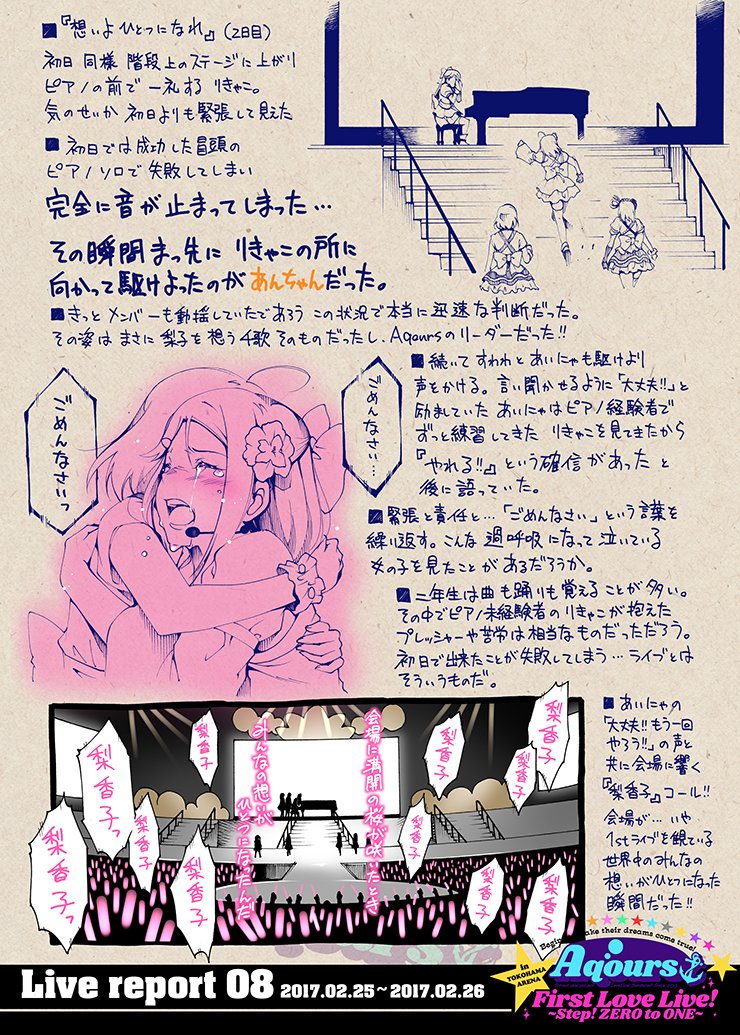 ■『想いよひとつになれ』(2日目)
初日同様 階段上のステージに上がり
ピアノの前で一礼する りきゃこ。
気のせいか 初日よりも緊張して見えた
■初日では成功した冒頭の
ピアノソロで失敗してしまい
完全に音が止まってしまった…
その瞬間まっ先に りきゃこの所に
向かって駆けよったのがあんちゃんだった。
■きっとメンバーも動揺していたであろう この状況で本当に迅速な判断だった。
その姿はまさに梨子を想う千歌そのものだったし、Aqoursのリーダーだった!!
ごめんなさい…
ごめんなさいっ
■続いて すわわと あいにゃも駆けより
声をかける。言い聞かせるように「大丈夫!!」と
励ましていた あいにゃはピアノ経験者で
ずっと練習してきた りきゃこを見てきたから
『やれる!!』という確信があった と
後に語っていた。
■緊張と責任と…「ごめんなさい」という言葉を
繰り返す。こんな過呼吸になって泣いている
女の子を見たことがあるだろうか。
■二年生は曲も踊りも覚えることが多い。
その中でピアノ未経験者の りきゃこが抱えた
プレッシャーや苦労は相当なものだっただろう。
初日で出来たことが失敗してしまう…ライブとは
そういうものだ。
■あいにゃの
「大丈夫!!もう一回
やろう!!」の声と
共に会場に響く
『梨香子』コール!!
会場が…いや
1stライブを観ている
世界中のみんなの
想いがひとつになった
瞬間だった!!
会場に満開の桜が咲いたとき
みんなの想いが
ひとつになったんだ
梨香子
梨香子
梨香子
梨香子
梨香子っ
梨香子
梨香子
梨香子
梨香子
梨香子っ
Live report 08 2017.02.25~2017.02.26
ake their dreams come true!
in
YOKOHAMA
ARENA
Aqours
First Love Live!
~Step! ZERO to ONE~